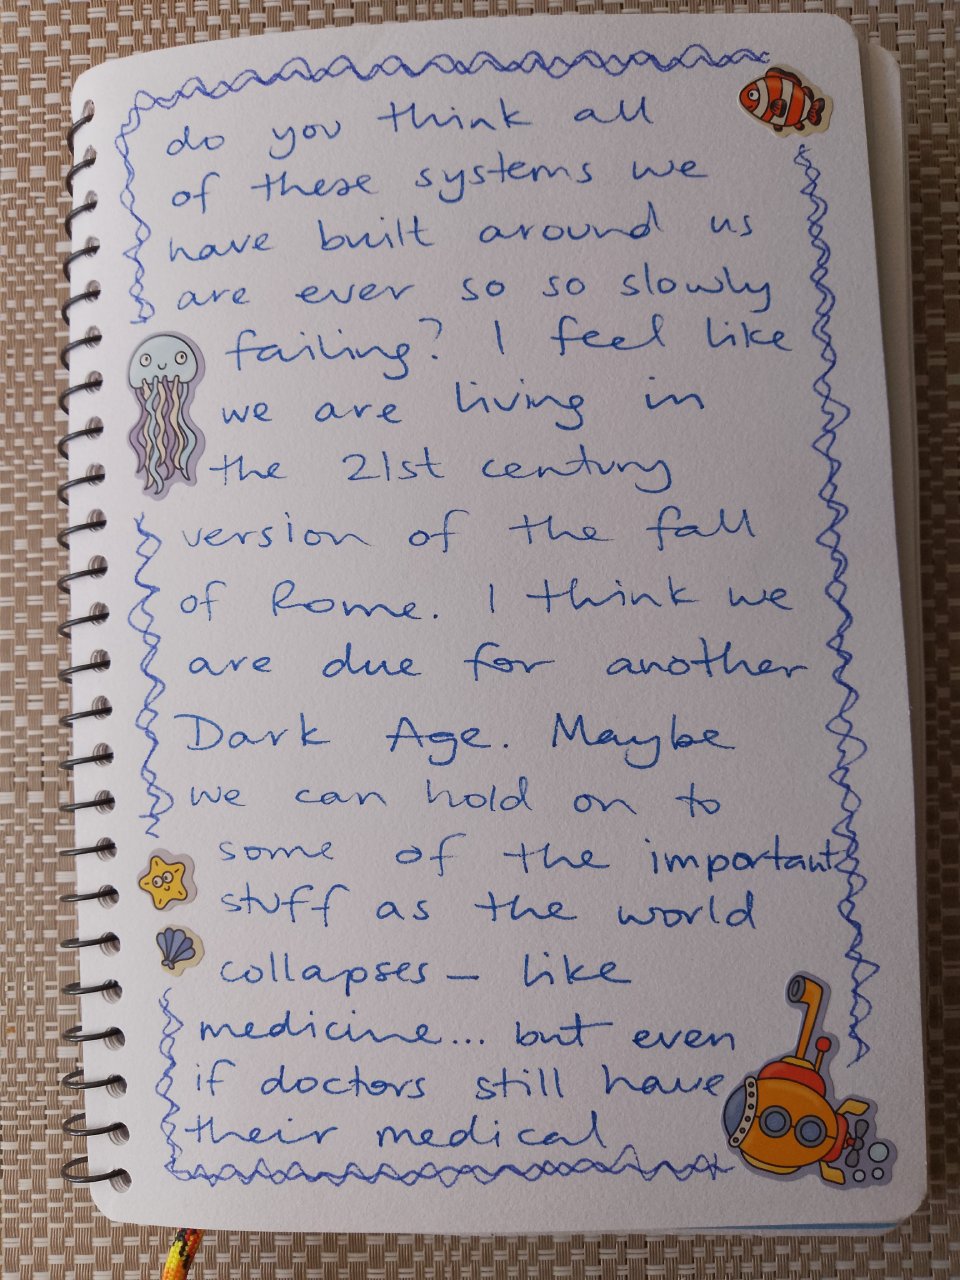 do you think all
of these systems we
have built around us
are ever so so slowly
failing? I feel like
we are living in
the 21st century
version of the fall
of Rome. I think we
are due for another
Dark Age. Maybe
we can hold on to
some of the important
stuff as the world
collapses – like
medicine... but even
if doctors still have
their medical